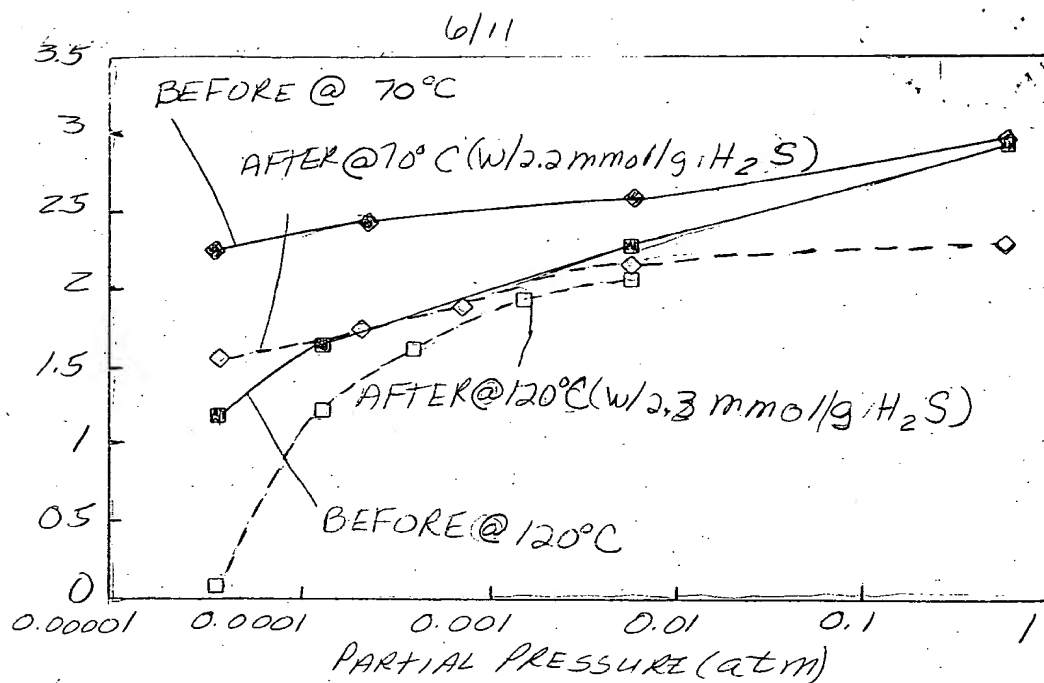 6/11
3.5
BEFORE @ 70°C
3
AFTER @ 70°C (W/2.2 mmol/g H₂S)
2.5
2
1.5
AFTER @ 120°C (W/2.3 mmol/g H₂S)
1
0.5
BEFORE @ 120°C
0
0.00001 0.0001 0.001 0.01 0.1 1
PARTIAL PRESSURE (atm)